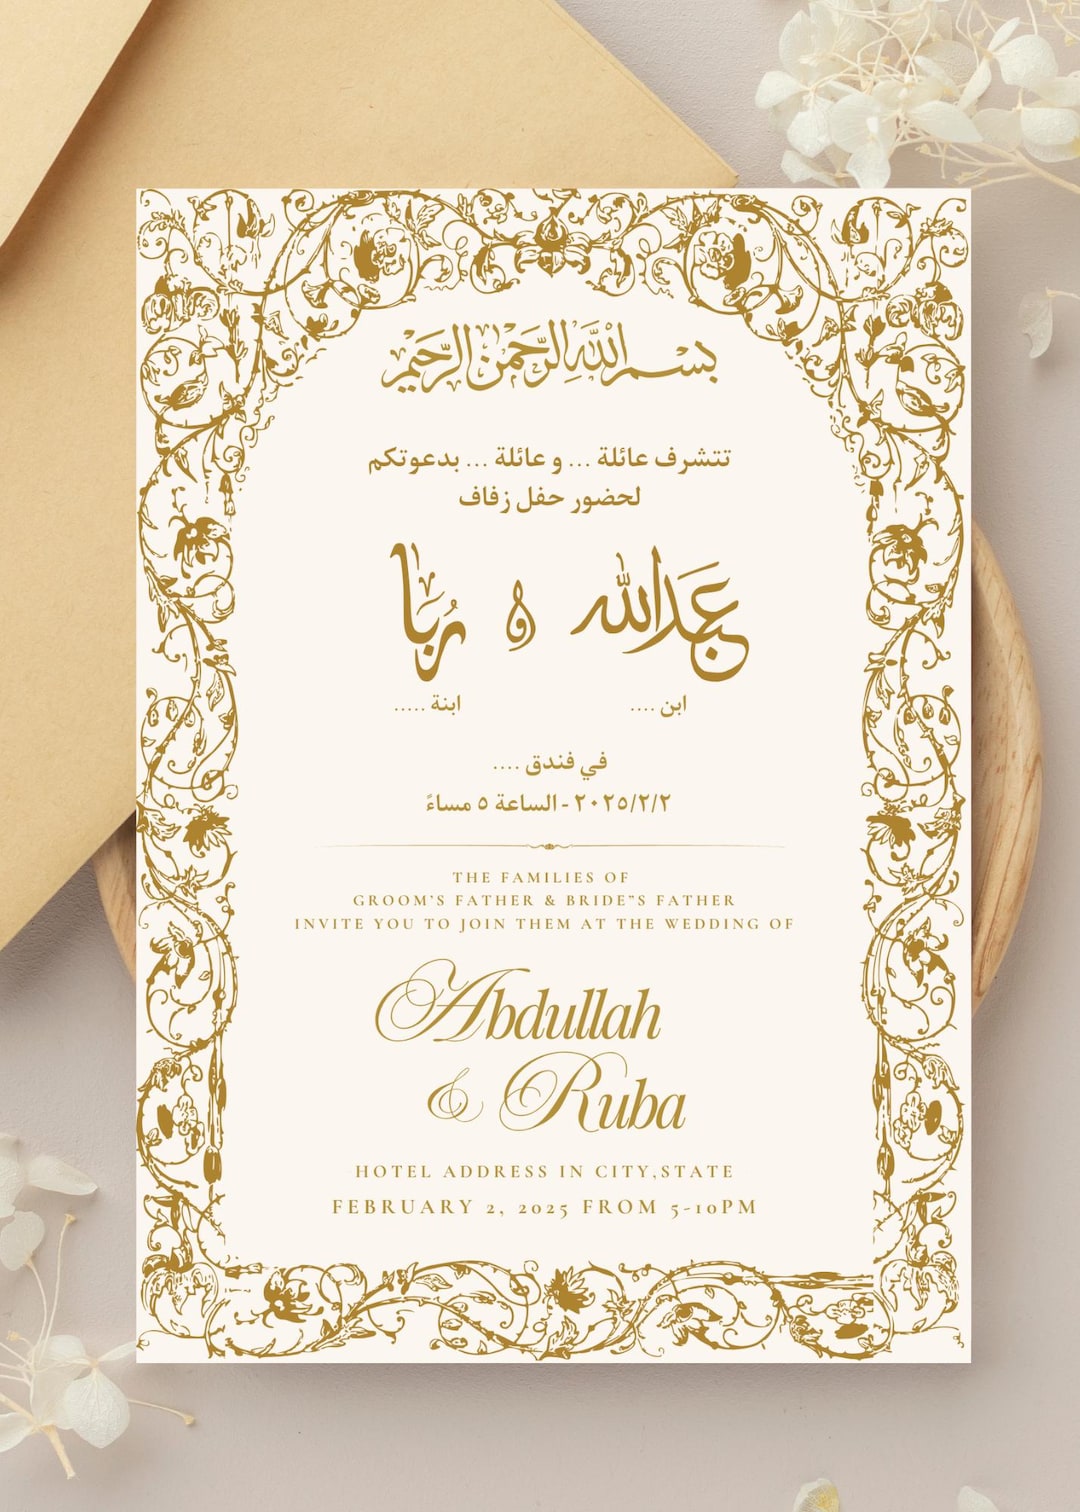 بسم الله الرحمن الرحيم
تتشرف عائلة ... و عائلة ... بدعوتكم
لحضور حفل زفاف
عبدالله و رُبَا
ابن .... ابنة .....
في فندق ....
٢٠٢٥/٢/٢ - الساعة ٥ مساءً
THE FAMILIES OF
GROOM'S FATHER & BRIDE"S FATHER
INVITE YOU TO JOIN THEM AT THE WEDDING OF
Abdullah
& Ruba
HOTEL ADDRESS IN CITY,STATE
FEBRUARY 2, 2025 FROM 5-10PM